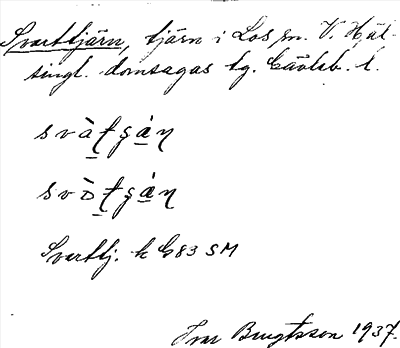 Svarttjärn, tjärn i Los sn. V. Häl-
singl. domsagas tg. Gävleb. l.
svàt̠ʂá̠n̥
svɔ̀t̠ʂá̠n̥
Svarttj. k G83 SM
Ivar Bengtsson 1937.